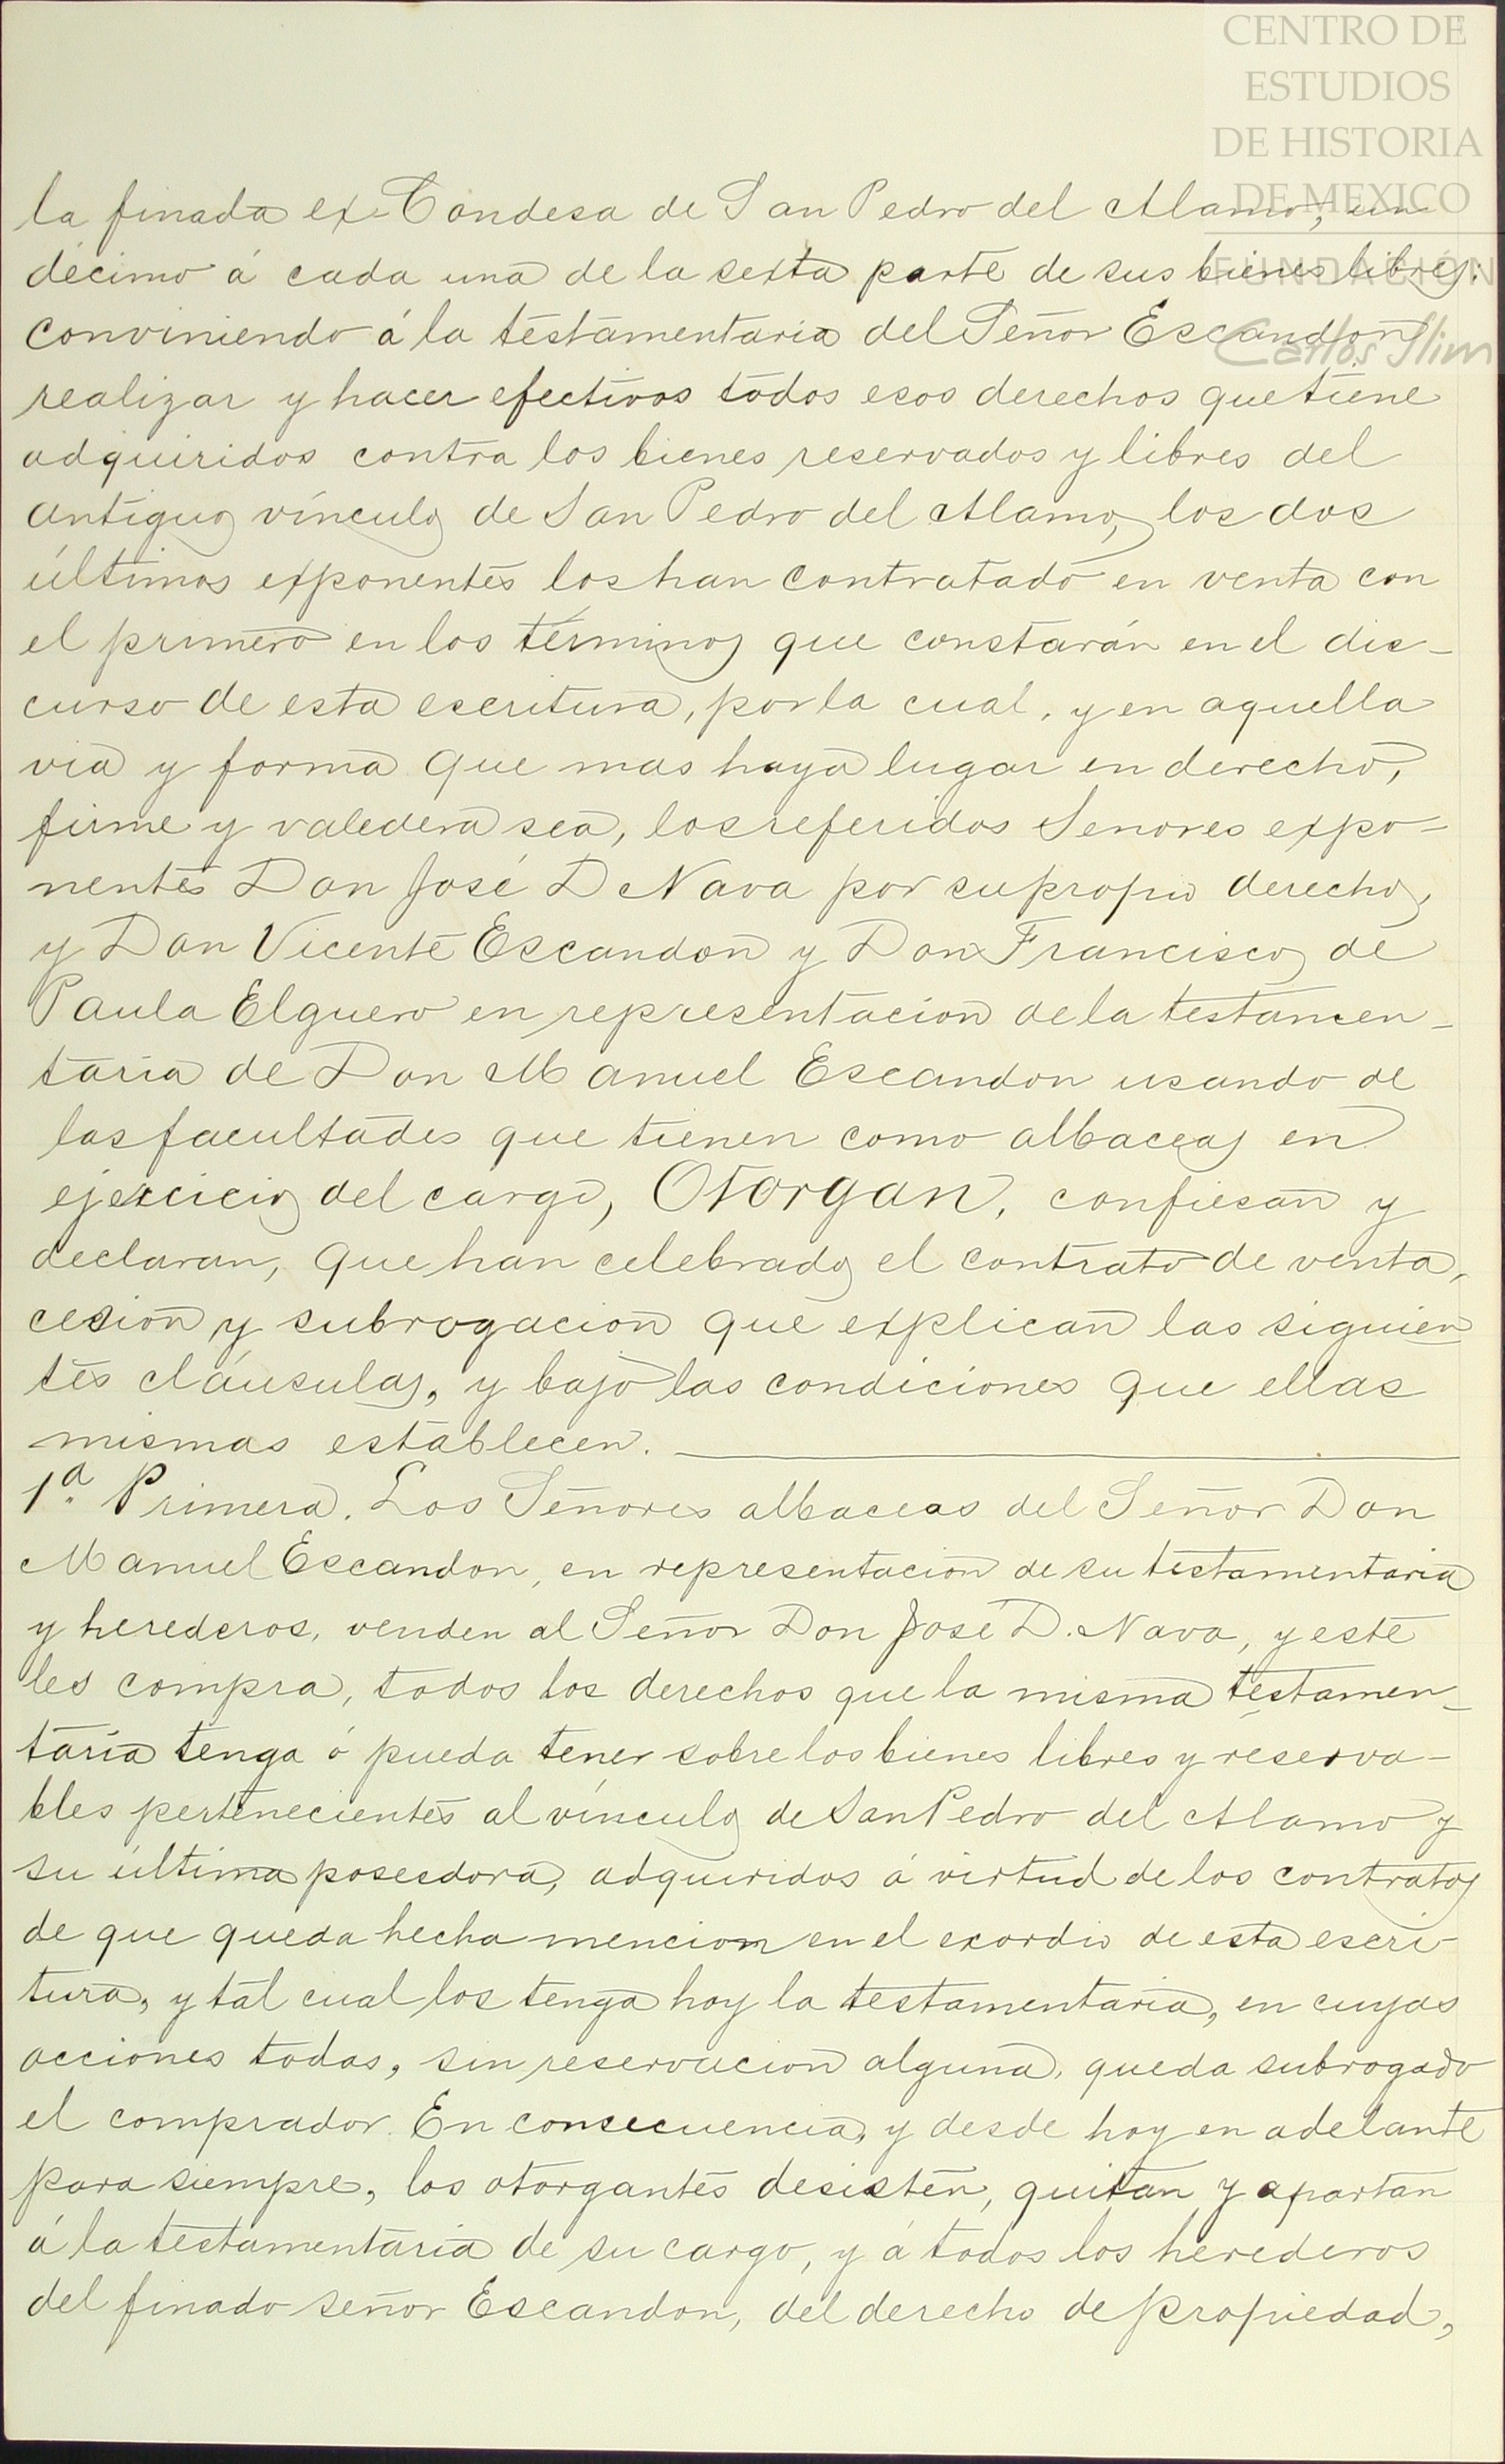 CENTRO DE
ESTUDIOS
DE HISTORIA
DE MEXICO
FUNDACIÓN
Carlos Slim
la finada ex-Condesa de San Pedro del Alamo, un
décimo á cada una de la sexta parte de sus bienes libres:
conviniendo á la testamentaria del Señor Escandon
realizar y hacer efectivos todos esos derechos que tiene
adquiridos contra los bienes reservados y libres del
antiguo vínculo de San Pedro del Alamo, los dos
últimos exponentes los han contratado en venta con
el primero en los términos que constarán en el dis-
curso de esta escritura, por la cual, y en aquella
via y forma que mas haya lugar en derecho,
firme y valedera sea, los referidos Senores expo-
nentes Don José D Nava por su propio derecho,
y Don Vicente Escandon y Don Francisco de
Paula Elguero en representacion de la testamen-
taria de Don Manuel Escandon usando de
las facultades que tienen como albaceas en
ejercicio del cargo, Otorgan, confiesan y
declaran, que han celebrado el contrato de venta,
cesion y subrogacion que explican las siguien
tes cláusulas, y bajo las condiciones que ellas
mismas establecen.
1ª Primera. Los Señores albaceas del Señor Don
Manuel Escandon, en representacion de su testamentaria
y herederos, venden al Señor Don José D. Nava, y este
les compra, todos los derechos que la misma testamen-
taría tenga ó pueda tener sobre los bienes libres y reserva-
bles pertenecientes al vínculo de San Pedro del Alamo y
su última poseedora, adquiridos á virtud de los contratos
de que queda hecha mencion en el exordio de esta escri-
tura, y tal cual los tenga hoy la testamentaria, en cuyas
acciones todas, sin reservacion alguna, queda subrogado
el comprador. En consecuencia, y desde hoy en adelante
para siempre, los otorgantes desisten, quitan y apartan
á la testamentaria de su cargo, y á todos los herederos
del finado señor Escandon, del derecho de propiedad,